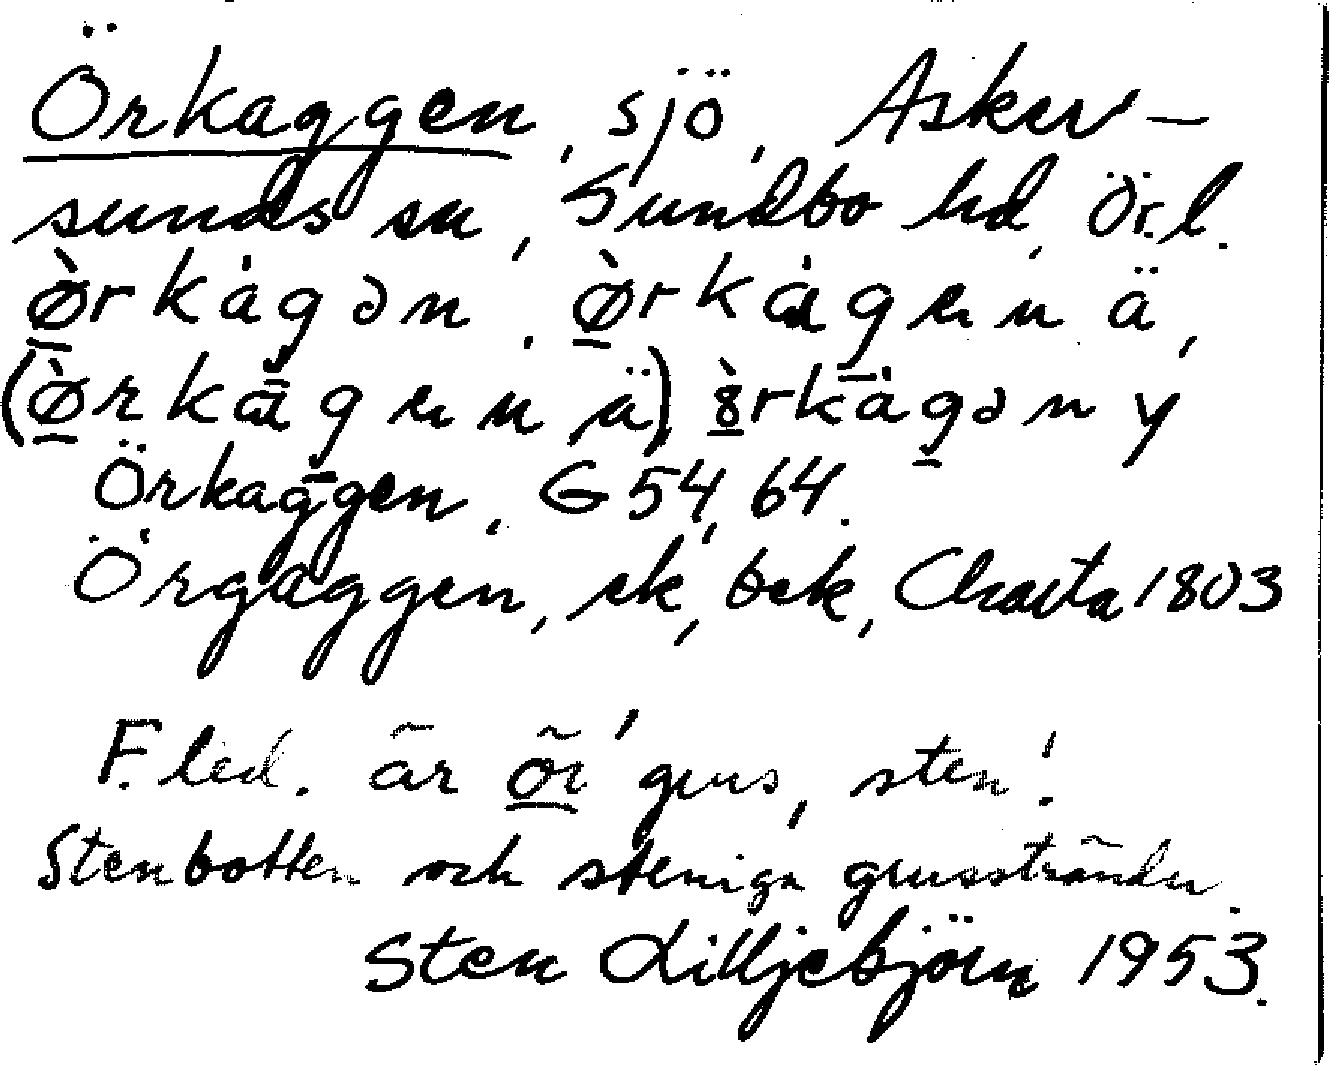 Örkaggen, sjö, Asker-
sunds sn, Sundbo hd, Ör.l.
ø̱̀rkȧgən, ø̱̀rkȧgen ä,
(ø̱̀rkāgen ä), 8̱̀rkȧgən y
Örkaggen, G 54, 64.
Örgaggen, sk, bek, Charta 1803
F.led. är ör 'grus, sten'.
Stenbotten och steniga grusstränder.
Sten Lilljebjörn 1953.